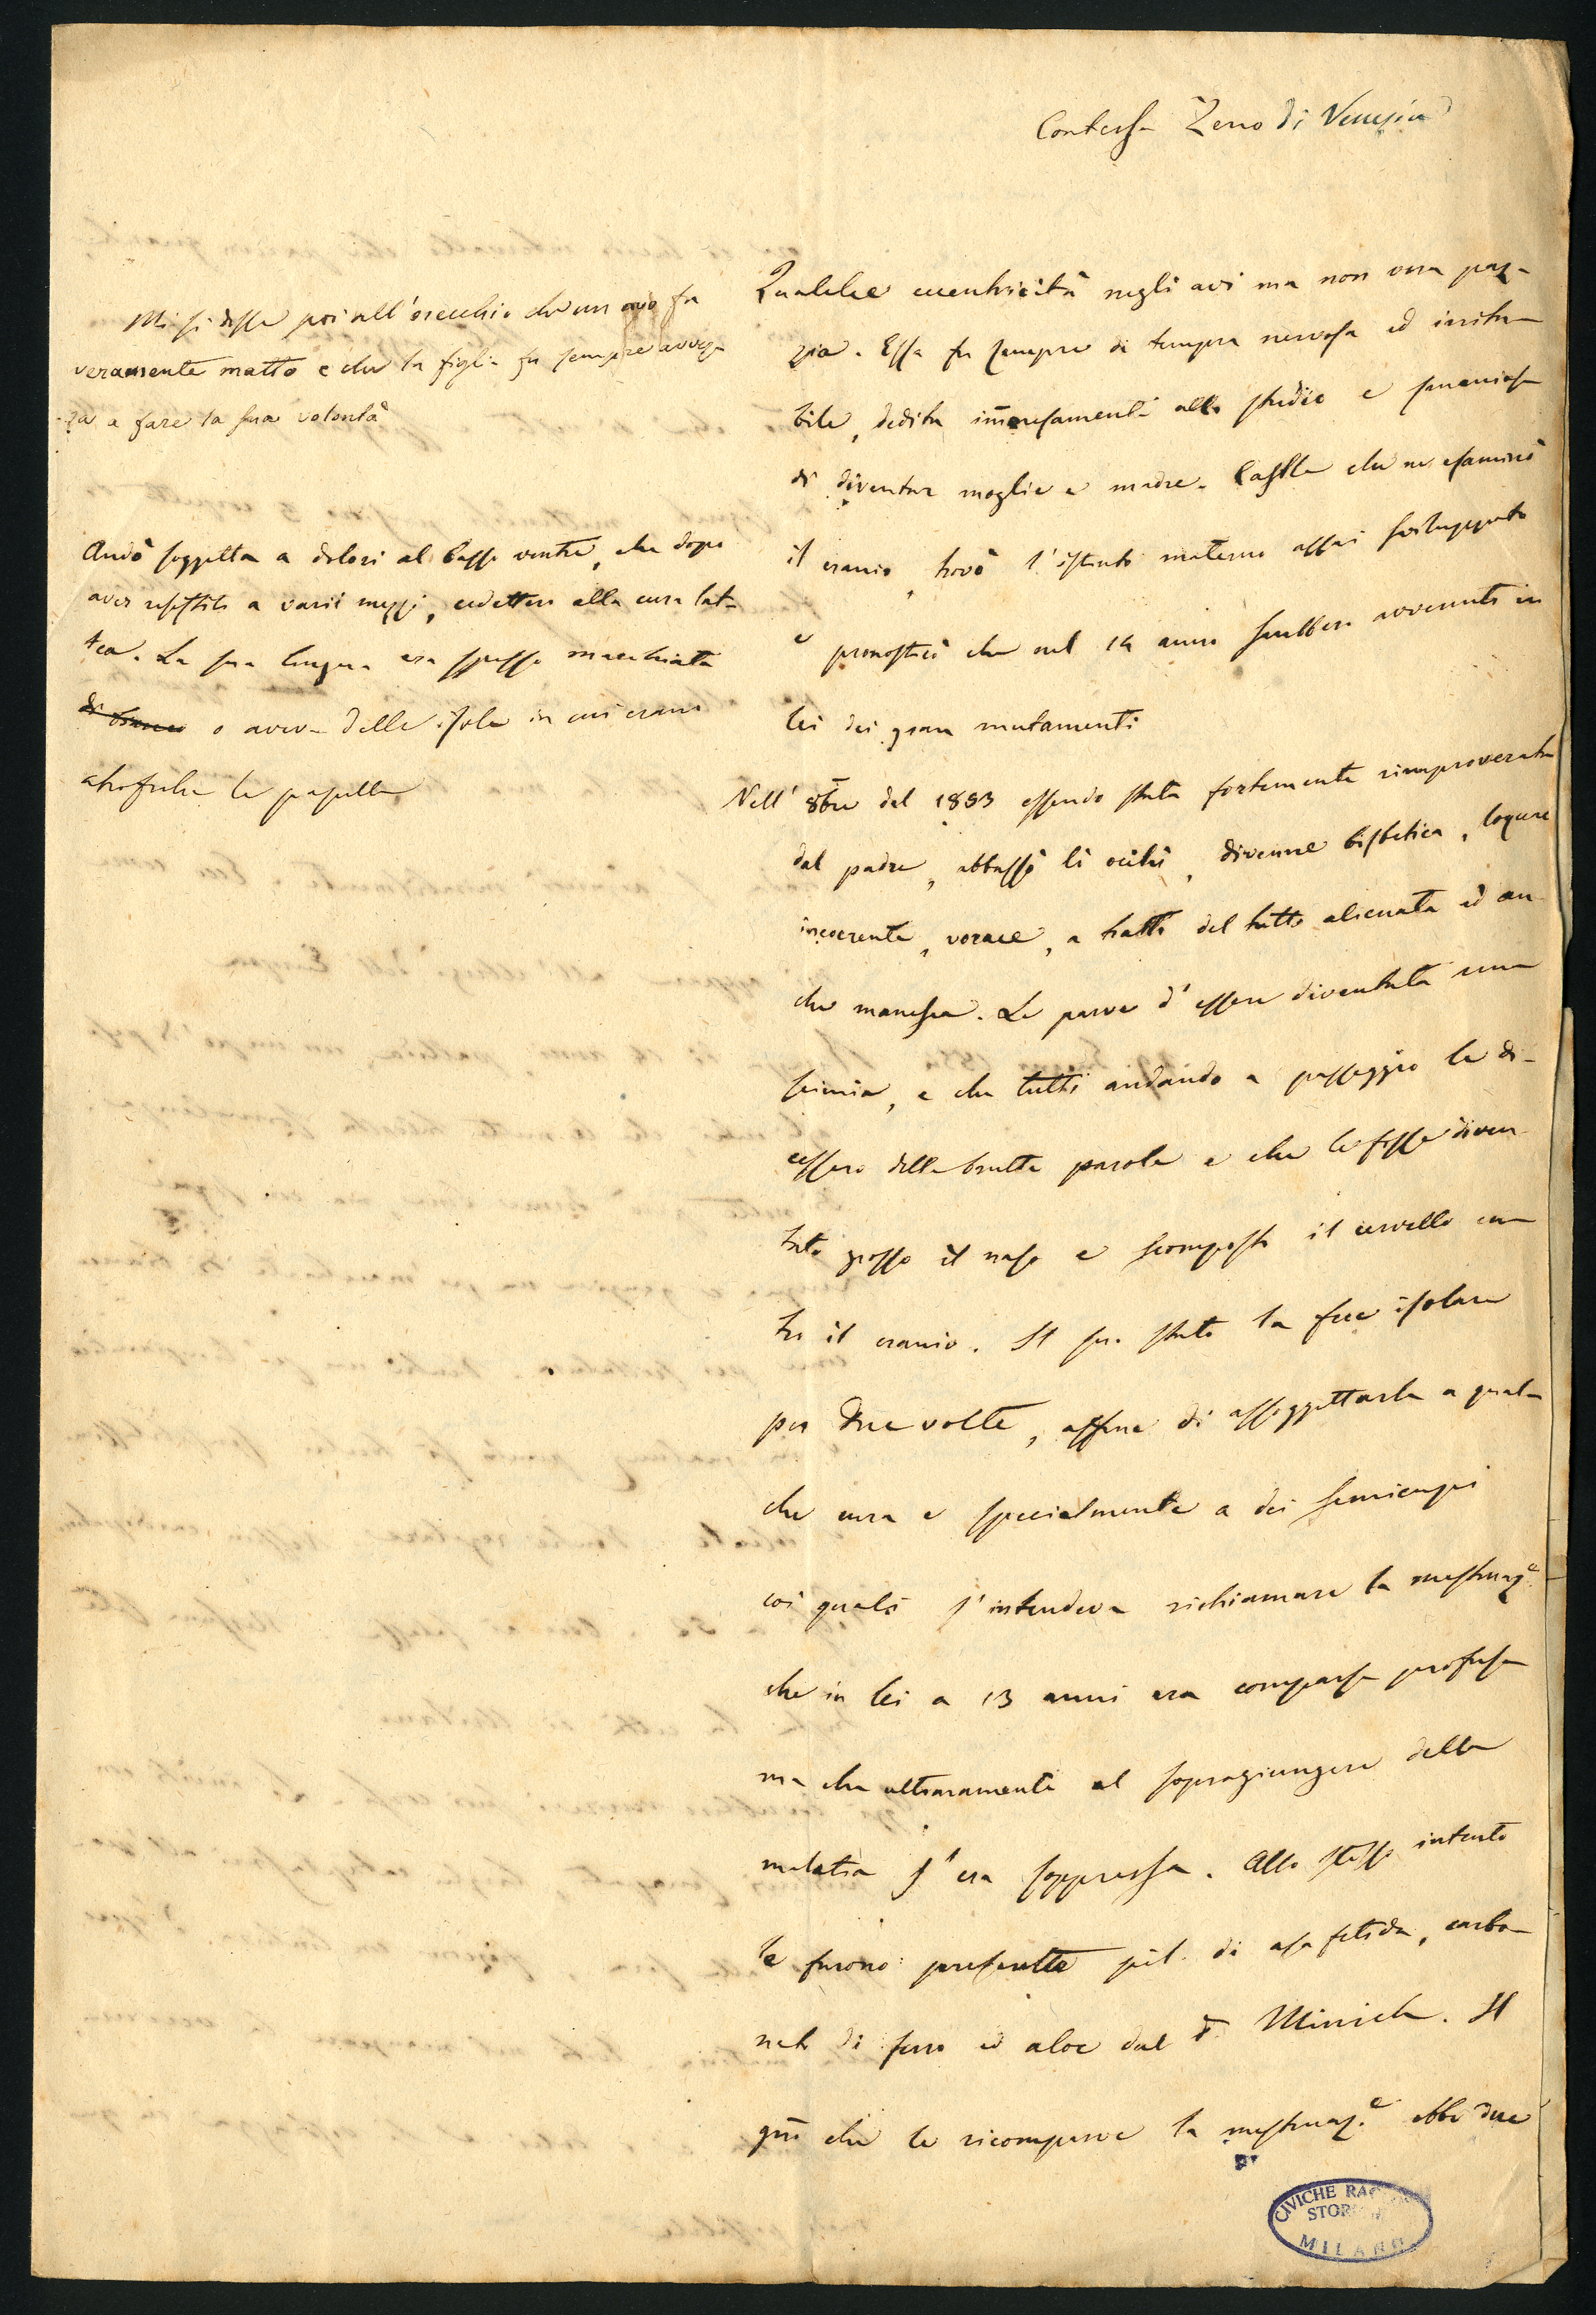 Contessa Zeno di Venezia
Mi si disse poi all'orecchio che un avo fu
veramente matto e che la figlia fu sempre avvez
-za a fare la sua volontà
Andò soggetta a dolori al basso ventre, che dopo
aver resistito a varii mezzi, cedettero alla cura lat-
tea. La sua lingua era spesso macchiata
di bianco o aveva delle isole in cui erano
atrofiche le papille
Qualche eccentricità negli avi ma non vera paz-
zia. Essa fu sempre di tempra nervosa ed irrita-
bile, dedita immensamente allo studio e smaniosa
di diventar moglie e madre. Castle che ne esaminò
il cranio, trovò l'istinto materno assai sviluppato
e pronosticò che nel 14 anno sarebbero avvenuti in
lei dei gran mutamenti
Nell' 8bre del 1853 essendo stata fortemente rimproverata
dal padre, abbassò li occhi, divenne bisbetica, loquace
incoerente, vorace, a tratti del tutto alienata ed an
che manesca. Le parve d'essere diventata una
scimia, e che tutti andando a passeggio le di-
cessero delle brutte parole e che le fosse diven
tato grosso il naso e scomposto il cervello en
tro il cranio. Il suo stato la fece isolare
per due volte, affine di assoggettarla a qual-
che cura e specialmente a dei semicupi
coi quali s'intendeva richiamare la mestruaz.e
che in lei a 13 anni era comparsa profusa
ma che ultimamente al sopragiungere della
malatia s'era soppressa. Allo stesso intento
le furono prescritte pil. di asa fetida, carbo-
nato di ferro ed aloe dal Dr. Minich. Il
gno che le ricomparve la mestruaz.e ebbe due
CIVICHE RACCOLTE
STORICHE
MILANO